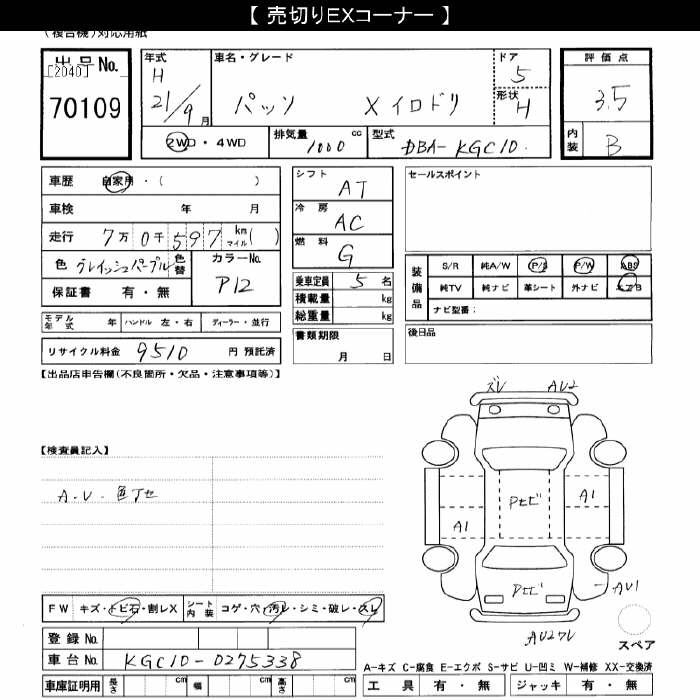 【 売切りEXコーナー 】
(複合機)対応用紙
出品No.
[2040]
70109
年式
H
21/9月
車名・グレード
パッソ X イロドリ
ドア
5
形状
H
評価点
3.5
内装
B
2WD・4WD
排気量 1000 cc
型式 DBA-KGC10
車歴 自家用・( )
車検 年 月
走行 7万0千597 km マイル( )
色 グレイッシュパープル 色替
カラーNo.
P12
保証書 有・無
シフト
AT
冷房
AC
燃料
G
乗車定員 5 名
積載量 kg
総重量 kg
書類期限
月 日
セールスポイント
装備品
S/R 純A/W P/S P/W ABS
純TV 純ナビ 革シート 外ナビ エアB
ナビ型番:
後日品
モデル年式 年 ハンドル 左・右 ディーラー・並行
リサイクル料金 9510 円 預託済
【出品店申告欄(不良箇所・欠品・注意事項等)】
ズレ AU2
【検査員記入】
A.U. 色丁セ
Pセビ
A1
A1
Pセビ
AU1
AU2ズレ
FW キズ・トビ石・割レX
シート内装 コゲ・穴・汚レ・シミ・破レ・スレ
登録No.
車台No. KGC10-0275338
車庫証明用 長さ cm 幅 cm 高さ cm
スペア
A-キズ C-腐食 E-エクボ S-サビ U-凹ミ W-補修 XX-交換済
工具 有・無 ジャッキ 有・無